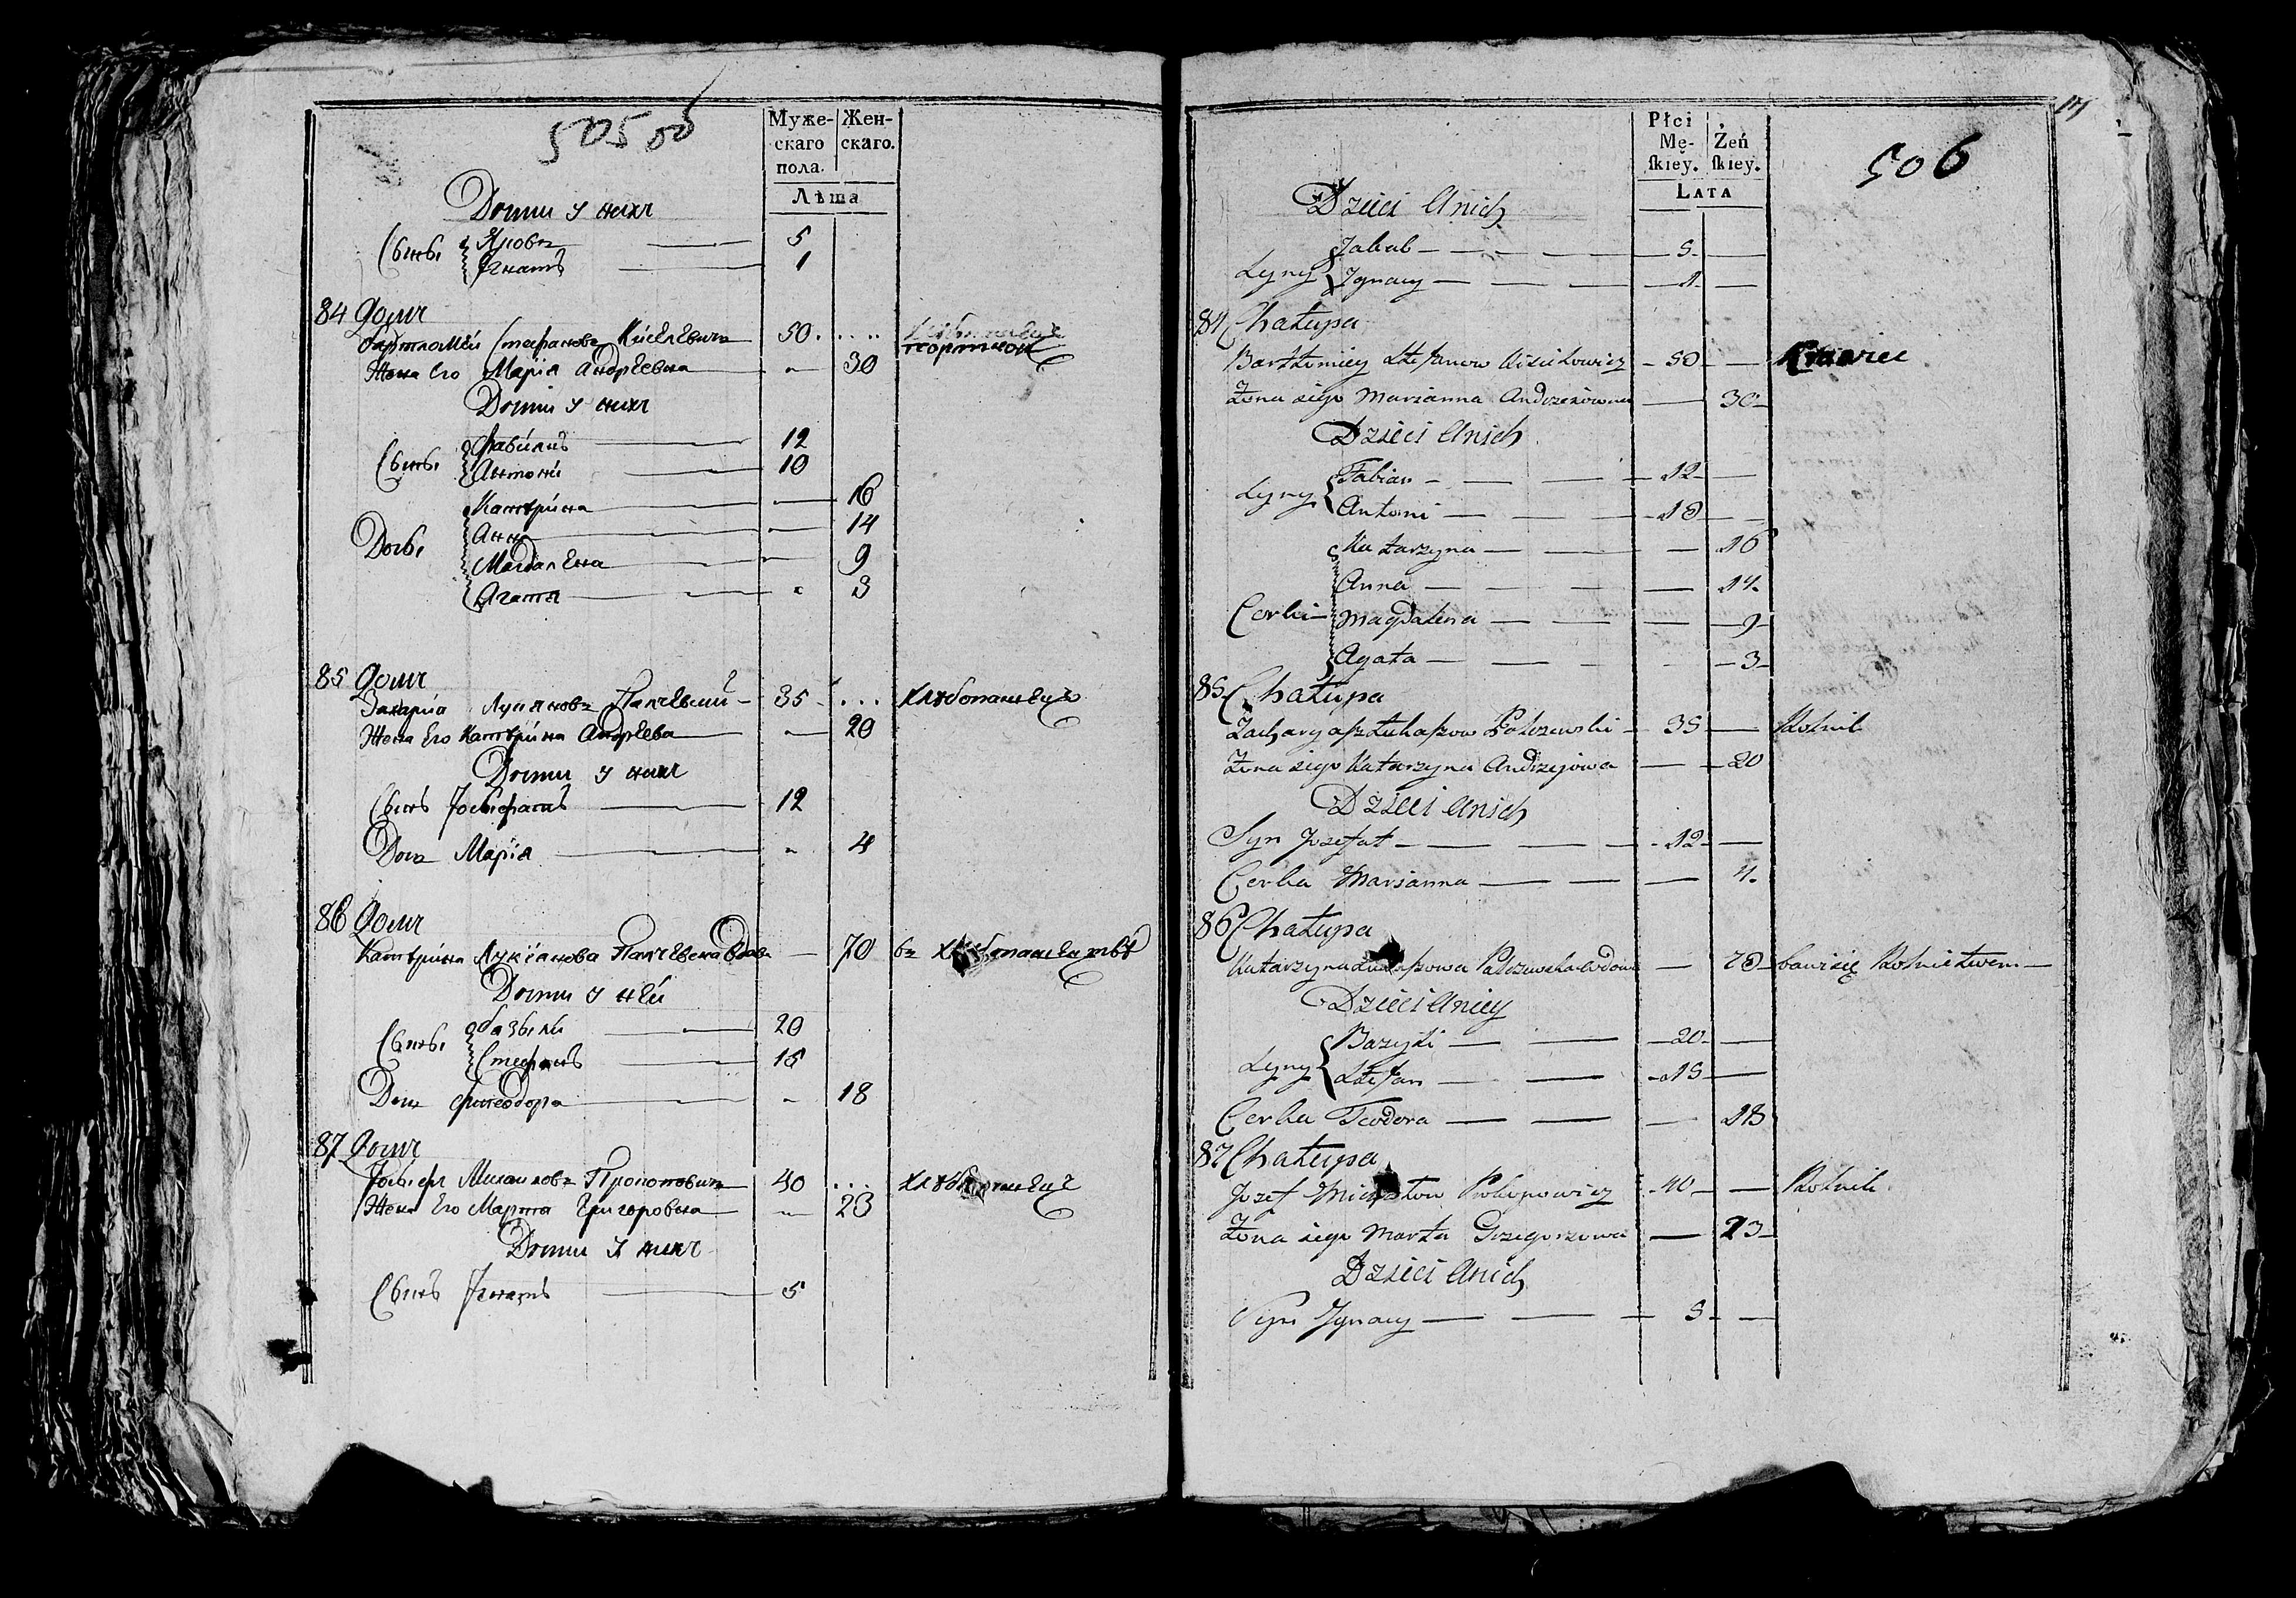 505 об
Муже-
скаго
пола.
Жен-
скаго.
Лѣта
Дѣти у нихъ
Сыны
Яковъ 5
Игнатъ 1
84 Домъ
Бартломей Стефановъ Киселевичъ 50
портной
Жена Его Марiя Андреевна 30
Дѣти у нихъ
Сыны
Фабианъ 12
Антони 10
Катерина 16
Дочь
Анна 14
Магдалена 9
Агата 3
85 Домъ
Захарiа 35 хлѣбопашецъ
Жена Его Катерина Андреева 20
Дѣти у нихъ
Сынъ Iосыфатъ 12
Дочь Марiя 4
86 Домъ
Катерина Лукiанова вдова 70 въ хлѣбопашествѣ
Дѣти у ней
Сыны
Базыли 20
Стефанъ 15
Дочь Фтеодора 18
87 Домъ
Iосыфъ Михаиловъ Прокоповичъ 40 хлѣбопашецъ
Жена Его Марта Григоровна 23
Дѣти у нихъ
Сынъ Игнатъ 5
506
Płci
Mę-
ſkiey.
Żeń
ſkiey.
LATA
Dzieci Unich
Syny
Jakub 5
Ignacy 1
84 Chałupa
Bartłomiey Stefanow Kisielowicz 50 Krawiec
Żona iego Marianna Andrzeiowna 30
Dzieci Unich
Syny
Fabian 12
Antoni 10
Katarzyna 16
Anna 14
Corki Magdalena 9
Agata 3
85 Chałupa
Zacharyasz Łukaszow Palczewski 35 Rolnik
Żona iego Katarzyna Andrzejowa 20
Dzieci Unich
Syn Jozefat 12
Corka Marianna 4
86 Chałupa
Katarzyna Łukaszowa Palczewska wdowa 70 bawi się Rolnictwem
Dzieci Uniey
Syny
Bazyli 20
Stefan 15
Corka Teodora 18
87 Chałupa
Jozef Michałow Prokopowicz 40 Rolnik
Żona iego Marta Grzegorzowa 23
Dzieci Unich
Syn Ignacy 5